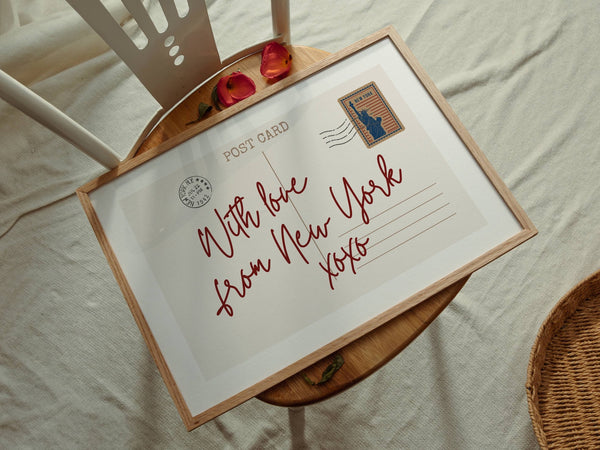 NEW YORK
POST CARD
With love
from New York
xoxo